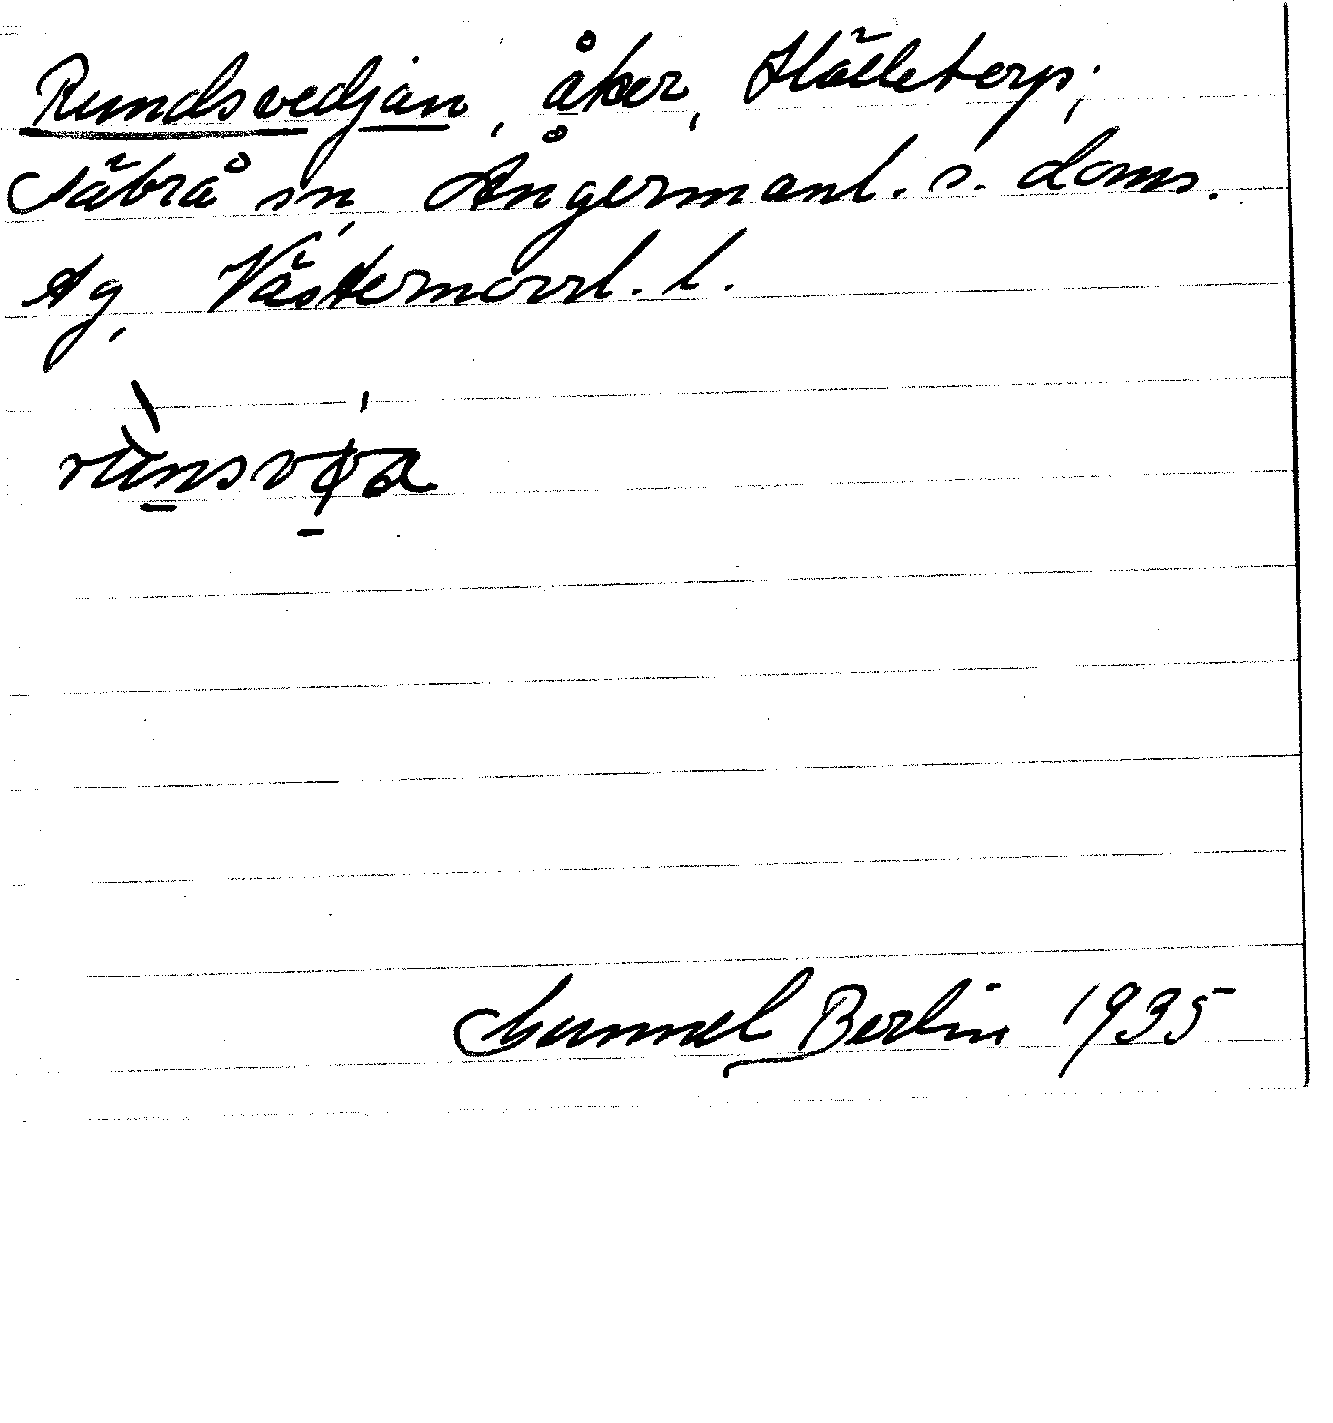 Rundsvedjan, åker, Hälletorp,
Säbrå sn, Ångermanl. s. doms.
Ag, Västernorrl. l.
Gunnel Berlin 1935